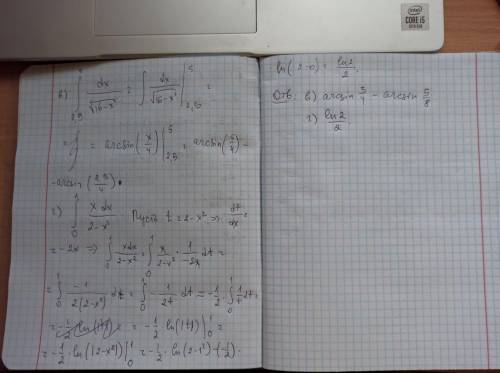 intel
CORE i5
в) ∫_{2,5}^{5} dx/√(16-x²) = ∫ dx/√(16-x²) |_{2,5}^{5} =
= arcsin(x/4) |_{2,5}^{5} = arcsin(5/4) -
- arcsin(2,5/4).
г) ∫_0^1 x dx/(2-x²). Пусть t = 2-x² ⇒ dt/dx =
= -2x ⇒ ∫_0^1 xdx/(2-x²) = ∫_0^1 x/(2-x²) · 1/(-2x) dt =
= ∫_0^1 -1/(2(2-x²)) dt = ∫_0^1 -1/(2t) dt = -1/2 · ∫_0^1 1/t dt =
= -1/2 ln(|t|) |_0^1 =
= -1/2 · ln(|2-x²|) |_0^1 = -1/2 · ln(2-1²) - (-1/2) ·
ln(2-0) = ln2/2.
Отв: в) arcsin 5/4 - arcsin 5/8
г) ln2/2.